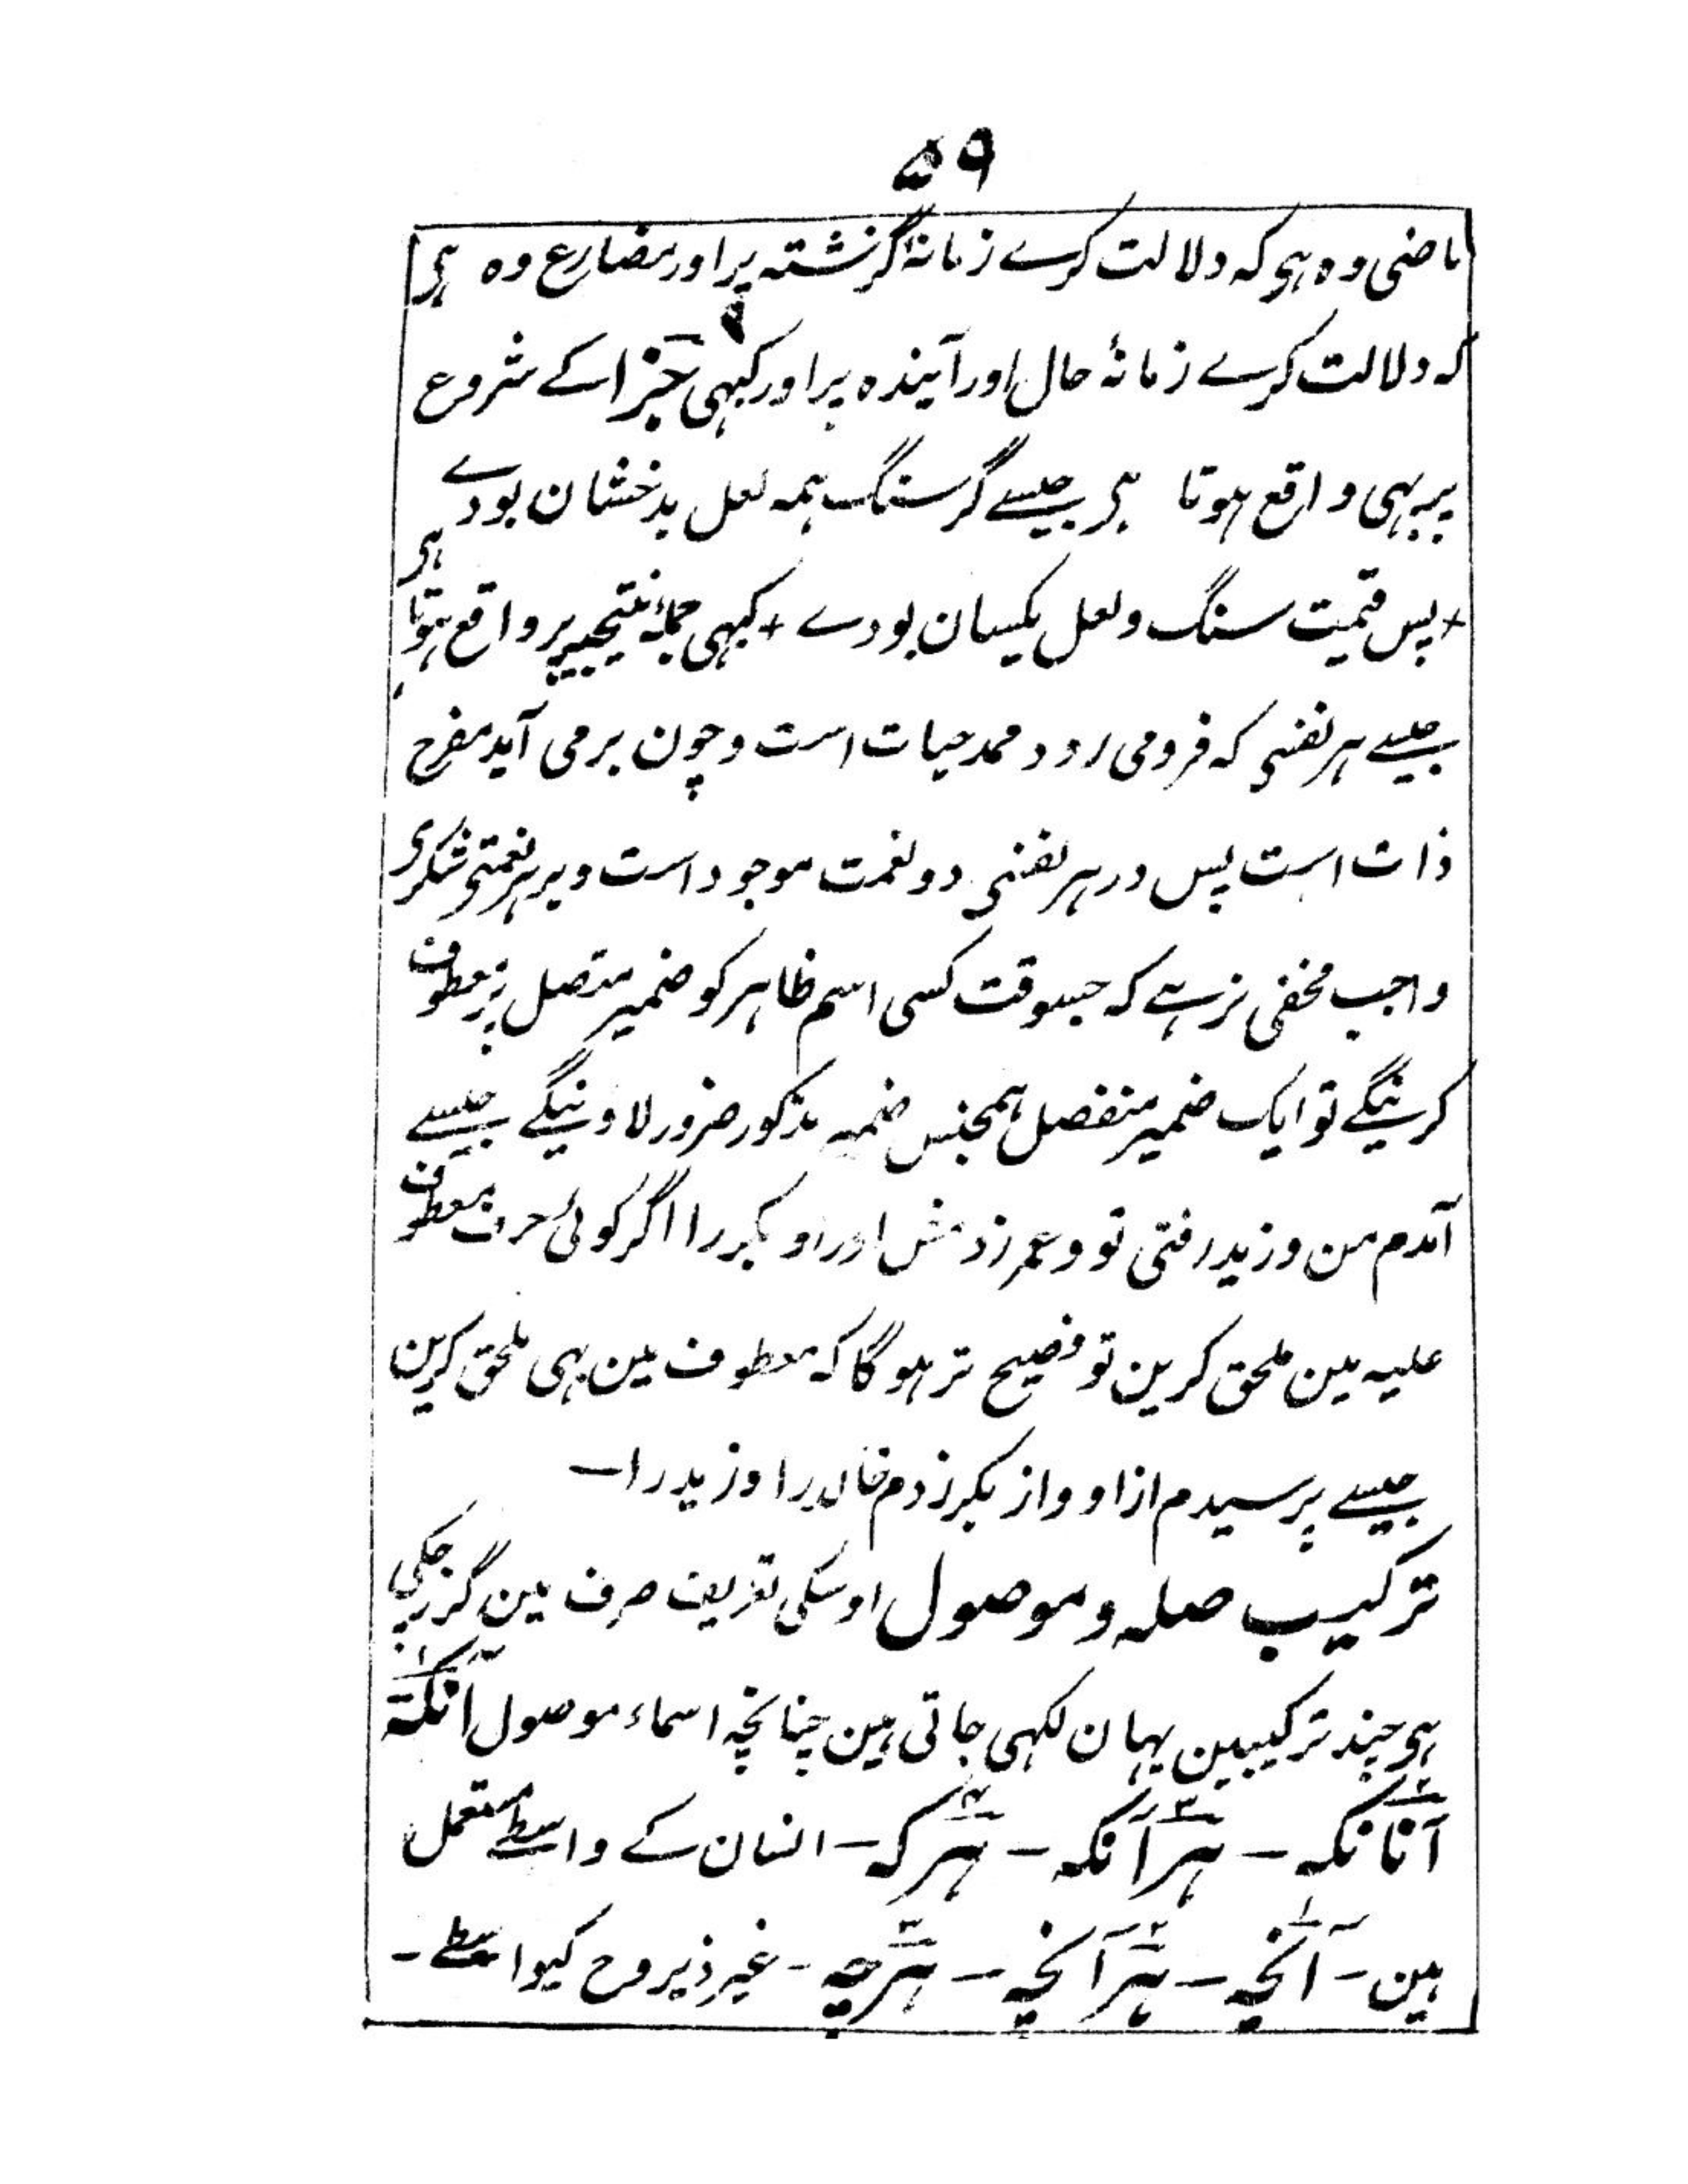 ۵۹
ماضی وہ ہی کہ دلالت کرے زمانۂ گزشتہ پر اور مضارع وہ ہی
کہ دلالت کرے زمانۂ حال اور آیندہ پر اور کبہی جزا کے شروع
پر بہی واقع ہوتا ہی جیسے گر سنگ ہمہ لعل بدخشان بودے
+ پس قیمت سنگ و لعل یکسان بودے + کبہی جملۂ نتیجیہ پر واقع ہوتا ہی
جیسے ہر نفسی کہ فرو می رود ممد حیات است و چون برمی آید مفرح
ذات است پس در ہر نفسی دو نعمت موجود است و بر ہر نعمتی شکری
واجب مخفی نرہے کہ جسوقت کسی اسم ظاہر کو ضمیر متصل پر معطوف
کرینگے تو ایک ضمیر منفصل ہمجنس ضمیر مذکور ضرور لاوینگے جیسے
آمدم من و زید رفتی تو و عمر زدمش اورا و بکر را اگر کوئی حرف معطوف
علیہ مین ملحق کرین تو فصیح تر ہوگا کہ معطوف مین بہی ملحق کرین
جیسے پرسیدم ازو و از بکر زدم خالد را و زید را ــ
ترکیب صلہ و موصول اوسکی تعریف صرف مین گزر چکی
ہی چند ترکیبین یہان لکہی جاتی ہین چنانچہ اسماء موصول آنکہ
آنانکہ ــ ہر آنکہ ــ ہر کہ ــ انسان کے واسطے مستعمل
ہین ــ آنچہ ــ ہر آنچہ ــ ہر چہ ــ غیر ذیروح کیواسطے ــ